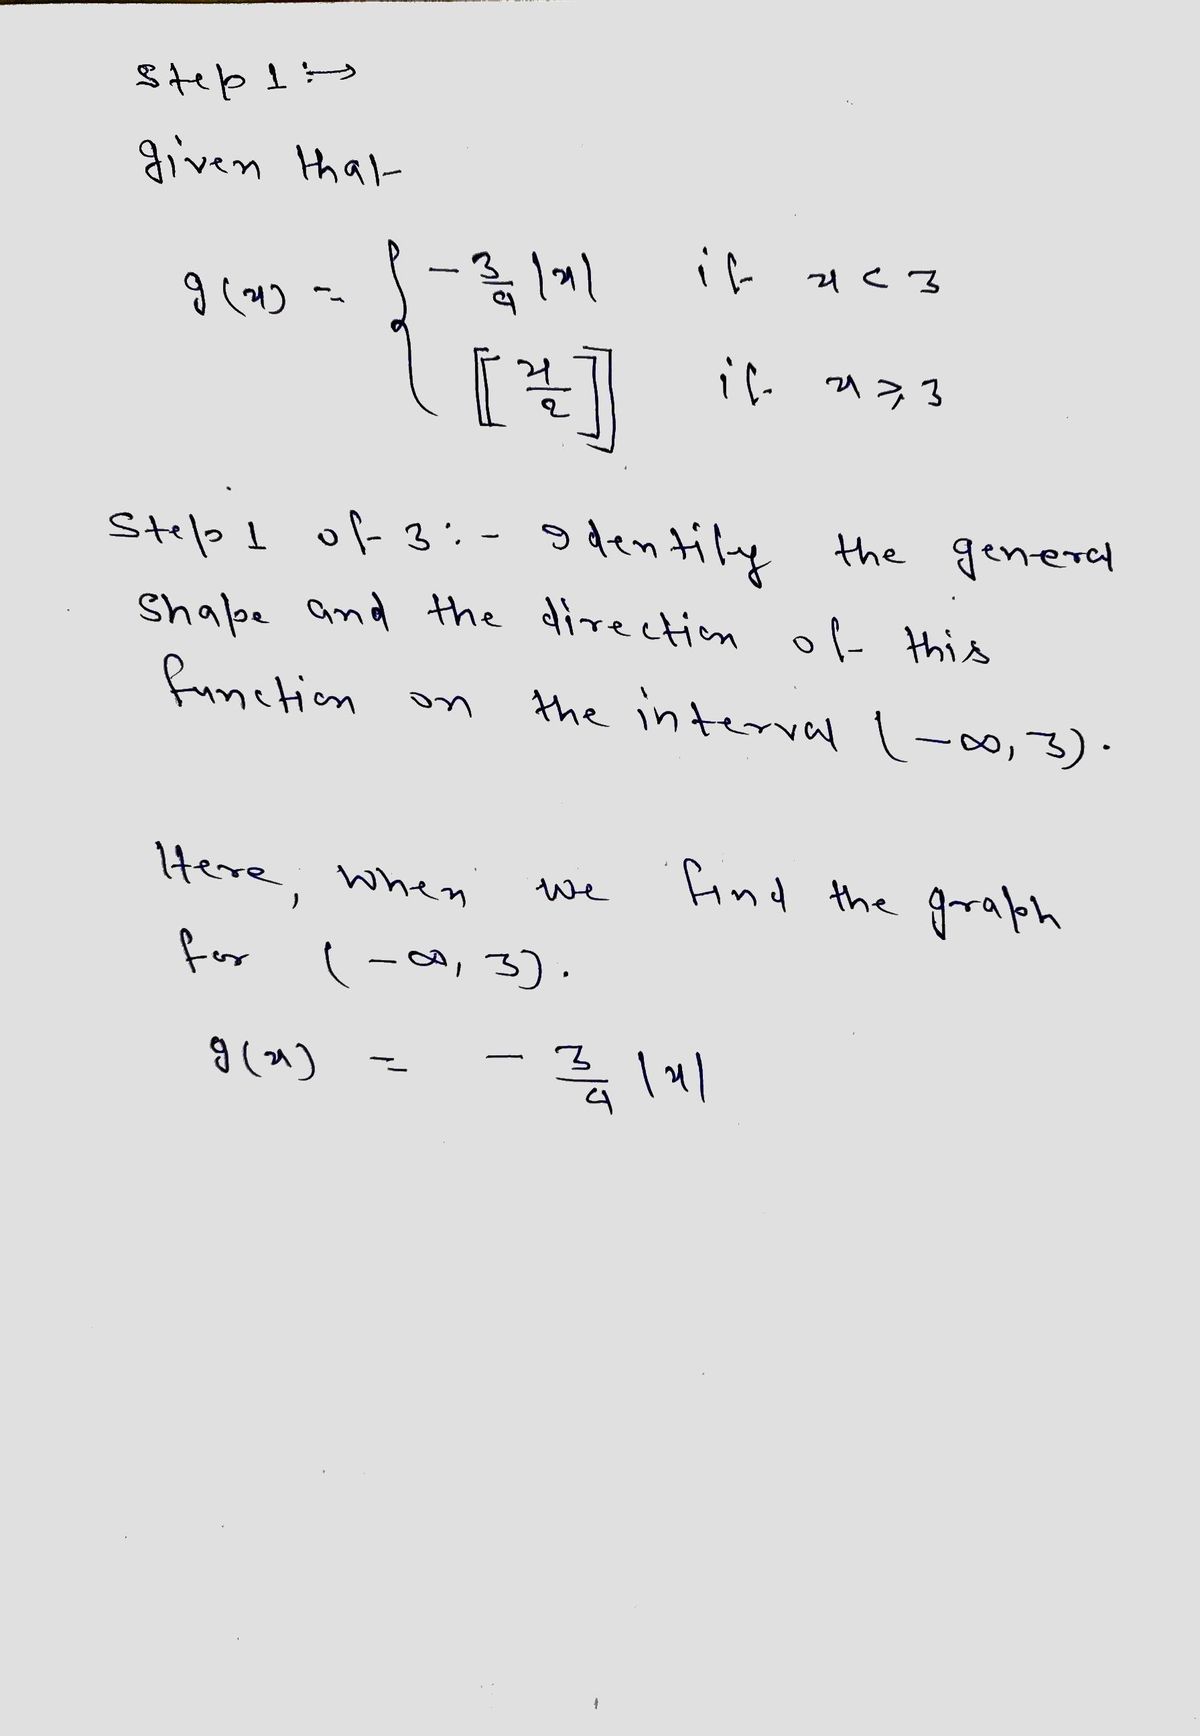 Step 1 :→
given that
g(x) = { -3/4 |x| if x < 3
[[x/2]] if x ⩾ 3
Step 1 of 3 :- Identify the general
shape and the direction of this
function on the interval (-∞, 3).
Here, when we find the graph
for (-∞, 3).
g(x) = - 3/4 |x|